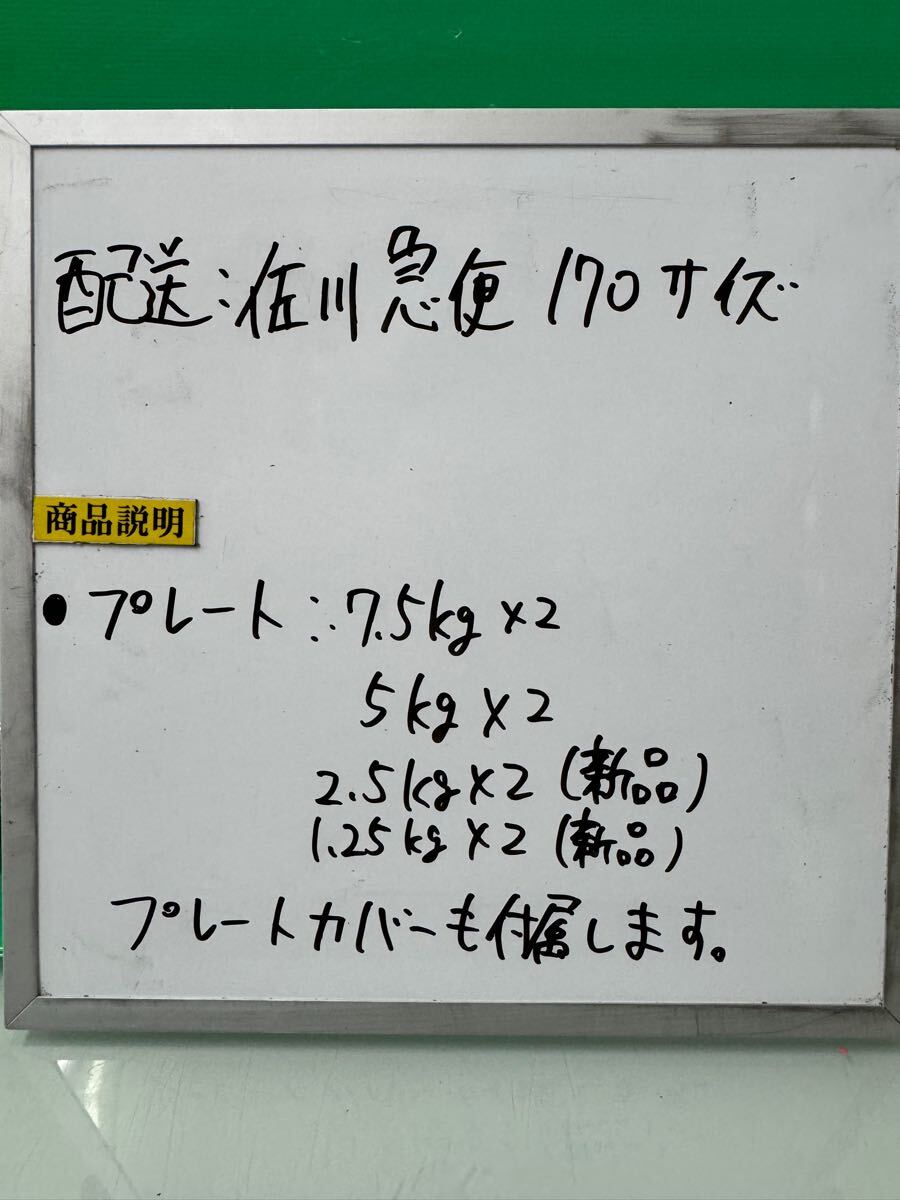 配送:佐川急便 170サイズ
商品説明
●プレート:7.5kg×2
5kg×2
2.5kg×2 (新品)
1.25kg×2 (新品)
プレートカバーも付属します。